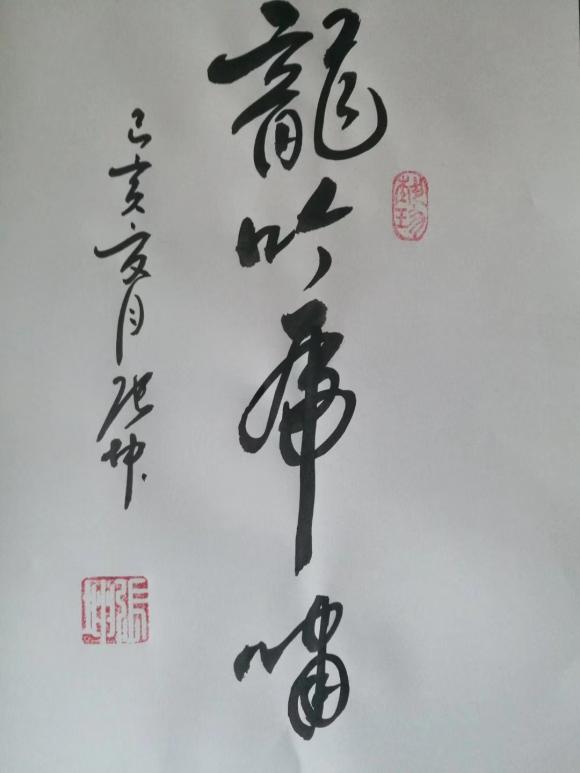 龍吟虎嘯
己亥夏月张坤
張坤